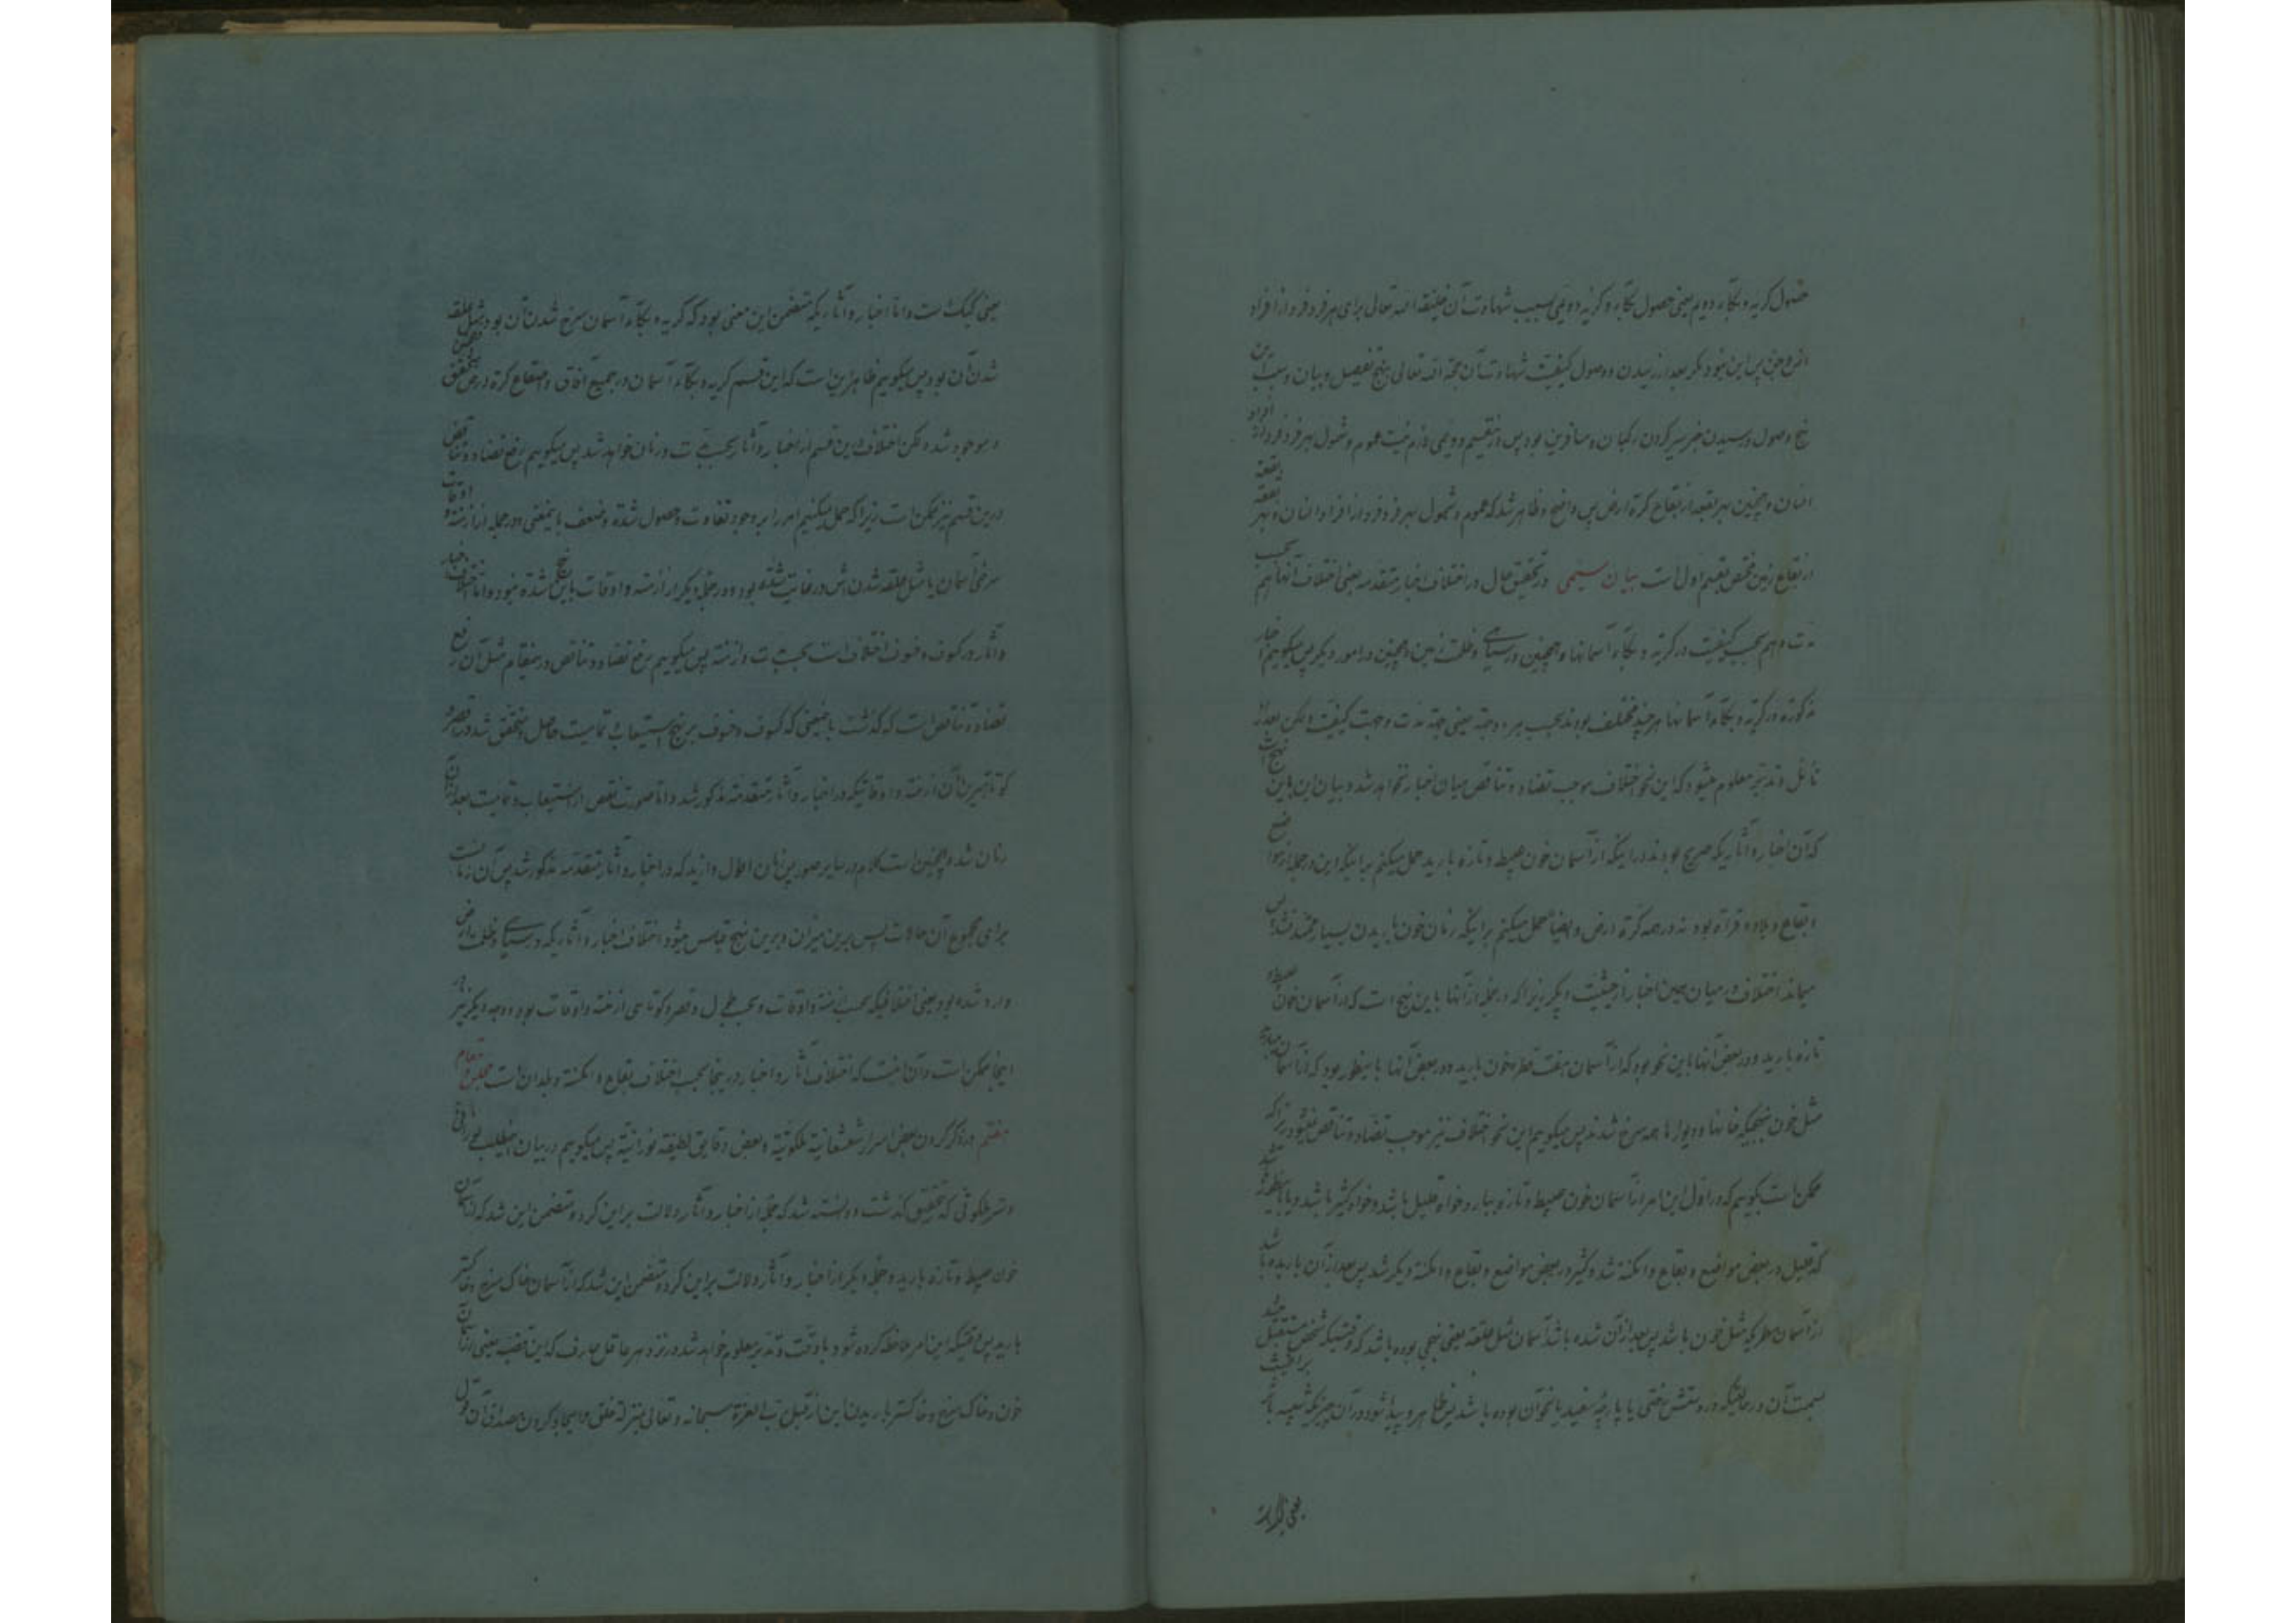 حصول گریه و بکاء دویم یعنی حصول بکاء و گریه دویمی بسبب شهادت آن خلیفة الله تعالی برای هر فرد فرد از افراد
انس و جن پس این نبود مگر بعد از رسیدن و وصول کیفیت شهادت آن حجة الله تعالی بنهج تفصیل و بیان و سبب این
نهج وصول و رسیدن خبر سیر کردن رکبان و مسافرین بود پس در تقسیم دویمی لازم نیست عموم و شمول هر فرد فرد از افراد
انسان و همچنین هر بقعه از بقاع کرۀ ارض پس واضح و ظاهر شد که عموم و شمول هر فرد فرد از افراد انسان و هر بقعه بقعه
از بقاع زمین مختص بقسم اول است بیان سیمی در تحقیق حال در اختلاف اخبار متقدمه یعنی اختلاف آنها هم بحسب
مدت و هم بحسب کیفیت در گریه و بکاء آسمانها و همچنین در سیاهی و ظلمت زمین و همچنین در امور دیگر پس میگوییم اخبار
مذکوره در گریه و بکاء آسمانها هر چند مختلف بودند بحسب هر دو جهة یعنی جهة مدت و جهت کیفیت لکن بعد از
تأمل و تدبر معلوم میشود که این نحو اختلاف موجب تضاد و تناقض میان اخبار نخواهد شد و بیان این باین نهج است
که آن اخبار و آثاریکه صریح بودند در اینکه از آسمان خون عبیط و تازه بارید حمل میکنم بر اینکه این در جمله از مواضع
و بقاع و بلاد و قراء بود نه در همه کرۀ ارض و ایضا حمل میکنم بر اینکه زمان خون باریدن بسیار ممتد نشد پس
میماند اختلاف در میان همین اخبار از حیثیت دیگر زیرا که در جمله از آنها باین نهج است که از آسمان خون عبیط و
تازه بارید و در بعض آنها باین نحو بود که از آسمان هفت قطره خون بارید و در بعض آنها باینطور بود که از آسمان بارید
مثل خون بنهجیکه خانها و دیوارها همه سرخ شدند پس میگوییم این نحو اختلاف نیز موجب تضاد و تناقض نمیشود زیرا که
ممکن است بگوییم که در اول این امر از آسمان خون عبیط و تازه ببارد خواه قلیل باشد و خواه کثیر باشد و یا باینطور شد
که قلیل در بعض مواضع و بقاع و امکنه شد و کثیر در بعض مواضع و بقاع و امکنه دیگر شد پس بعد از آن باریده باشد
از آسمان مطریکه مثل خون باشد پس بعد از آن شده باشد آسمان مثل علقه یعنی نهجی بوده باشد که وقتیکه شخص مستقبل شد
بسمت آن در حالتیکه در دستش رختی یا پارچۀ سفید یا نحو آن بوده باشد پس ظاهر و پیدا شود در آن چیزیکه شبیه باثر براغیث
یعنی کیک است
یعنی کیک است و اما اخبار و آثاریکه متضمن این معنی بود که گریه و بکاء آسمان سرخ شدن آن بود مثل علقه
شدن آن بود پس میگوییم ظاهر این است که این قسم گریه و بکاء آسمان در جمیع آفاق و اصقاع کرۀ ارض متحقق
و موجود شد و لکن اختلاف این قسم از اخبار و آثار بحسب مدت و زمان خواهد شد پس میگوییم رفع تضاد و تناقض
درین قسم نیز ممکن است زیرا که حمل میکنیم امر را بر وجود تفاوت و حصول شدة و ضعف باینمعنی در جمله از ازمنه و اوقات
سرخی آسمان یا مثل علقه شدن اش در غایت شدة بود و در جمله دیگر از ازمنه و اوقات باین نهج شدة نبود و اما اختلاف اخبار
و آثار در کسوف و خسوف اختلاف است بحسب مدت و ازمنه پس میگوییم رفع تضاد و تناقض درینمقام مثل آن رفع
تضاد و تناقض است که گذشت باینمعنی که کسوف و خسوف بر نهج استیعاب و تمامیت حاصل و متحقق شد در اقصر و
کوتاهترین آن ازمنه و اوقاتیکه در اخبار و آثار متقدمه مذکور شد و اما صورت نقص از استیعاب و تمامیت بعد از آن
زمان شد و همچنین است کلام در سایر صور پس زمان اطول و ازید که در اخبار و آثار متقدمه مذکور شد پس آن زمانست
برای مجموع آن حالات پس برین میزان و برین نهج قیاس میشود اختلاف اخبار و آثاریکه در سیاهی و ظلمت ارض
وارد شده بود یعنی اختلافیکه بحسب ازمنه و اوقات و بحسب طول و قصر و کوتاهی ازمنه و اوقات بود و وجه دیگر نیز در
اینجا ممکن است و آن اینست که اختلاف آثار و اخبار درینجا بحسب اختلاف بقاع و امکنه و بلدان است مجلس و مقام
هفتم در ذکر کردن بعض اسرار شعشعانیة ملکوتیة و بعض دقایق لطیفه نورانیة پس میگوییم در بیان اینمطلب نورانی
و سر ملکوتی که تحقیق گذشت و دانسته شد که جمله از اخبار و آثار دلالت بر این کرد و متضمن این شد که از آسمان
خون عبیط و تازه بارید و جمله دیگر از اخبار و آثار دلالت بر این کرد و متضمن این شد که از آسمان خاک سرخ و خاکستر
بارید پس وقتیکه این امر ملاحظه کرده شود با دقت و تدبر معلوم خواهد شد در نزد هر عاقل عارف که این قضیه یعنی از آسمان
خون و خاک سرخ و خاکستر باریدن این از قبل رب العزة سبحانه و تعالی بمنزلۀ خلق و ایجاد کردن مصداق آن قول